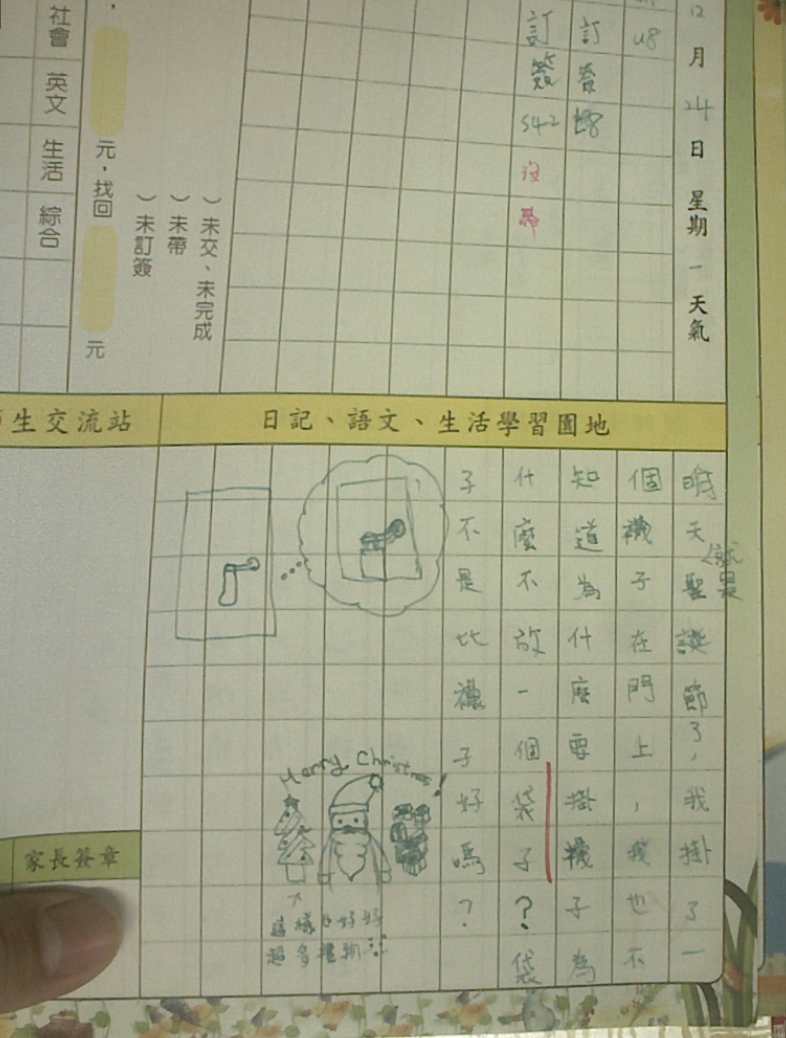 12月24日星期一天氣
48
訂簽
訂簽542沒帶
）未交、未完成
）未帶
）未訂簽
元，找回
元
社會
英文
生活
綜合
日記、語文、生活學習園地
生交流站
明天就是聖誕節了，我掛了一
個襪子在門上，我也不
知道為什麼要掛襪子為
什麼不放一個袋子？袋
子不是比襪子好嗎？
Merry Christmas!
這樣也好好
超多禮物
家長簽章